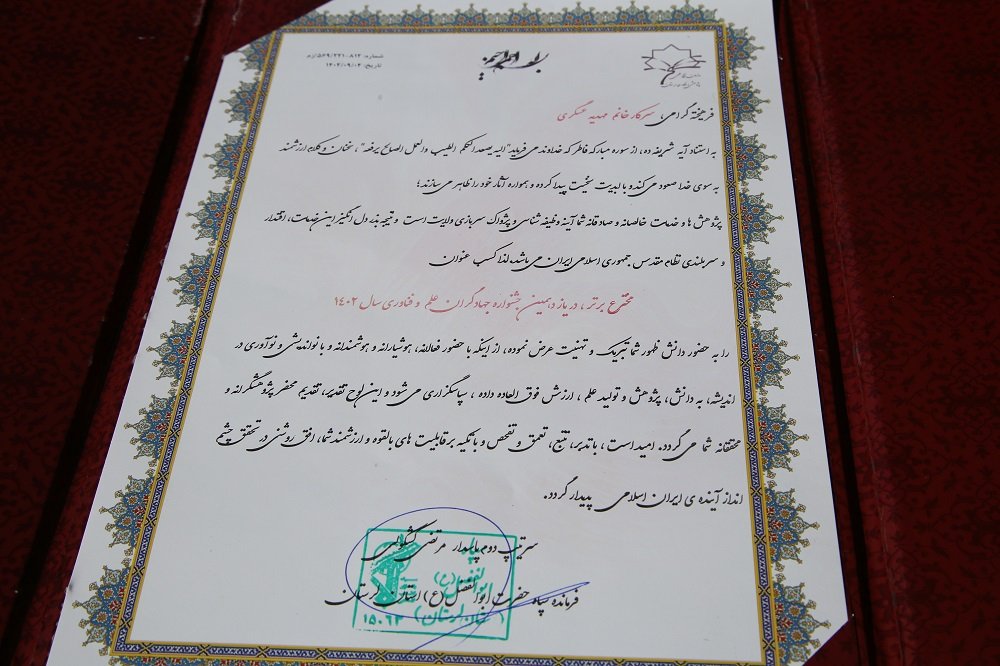 بسم الله الرحمن الرحیم
شماره: ۵۶۹/۲۲۱۰۸۱۲/رم
تاریخ: ۱۴۰۲/۰۹/۰۲
فرهیختهٔ گرامی، سرکار خانم مهدیه عسگری
به استناد آیه شریفه ده، از سوره مبارکه فاطر که خداوند می فرماید "الیه یصعد الکلم الطیب والعمل الصالح یرفعه"، سخنان و کلام ارزشمند
به سوی خدا صعود می کند و با ابدیت سنخیت پیدا کرده و همواره آثار خود را ظاهر می سازند؛
پژوهش ها و خدمات خالصانه و صادقانه شما آیینه وظیفه شناسی و پژواک سربازی ولایت است و نتیجه بذر دل انگیز این خدمات، اقتدار
و سربلندی نظام مقدس جمهوری اسلامی ایران می باشد. لذا کسب عنوان
مخترع برتر، در یازدهمین جشنواره جهادگران علم و فناوری سال ۱۴۰۲
را به حضور دانش ظهور شما تبریک و تهنیت عرض نموده، از اینکه با حضور فعالانه، هوشیارانه و هوشمندانه و با نواندیشی و نوآوری در
اندیشه، به دانش، پژوهش و تولید علم، ارزش فوق العاده داده، سپاسگزاری می شود و این لوح تقدیر، تقدیم محضر پژوهشگرانه و
محققانه شما می گردد. امید است، با تدبر، تتبع، تعمق و تفحص و با تکیه بر قابلیت های بالقوه و ارزشمند شما، افق روشنی در تحقق چشم
انداز آینده ی ایران اسلامی پدیدار گردد.
سرتیپ دوم پاسدار مرتضی کشکولی
فرمانده سپاه حضرت ابوالفضل (ع) استان لرستان
۱۵۰۶۳